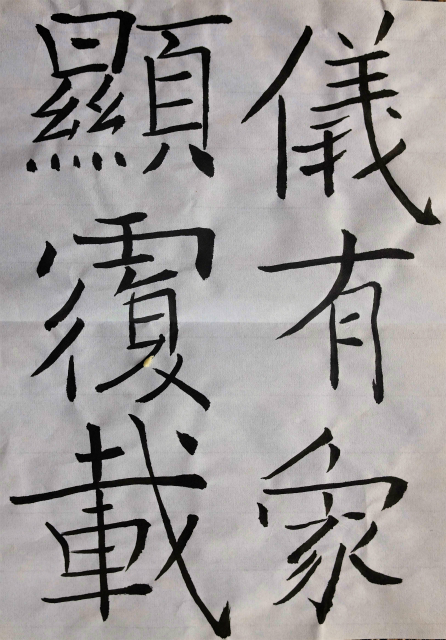 儀有象
顯覆載